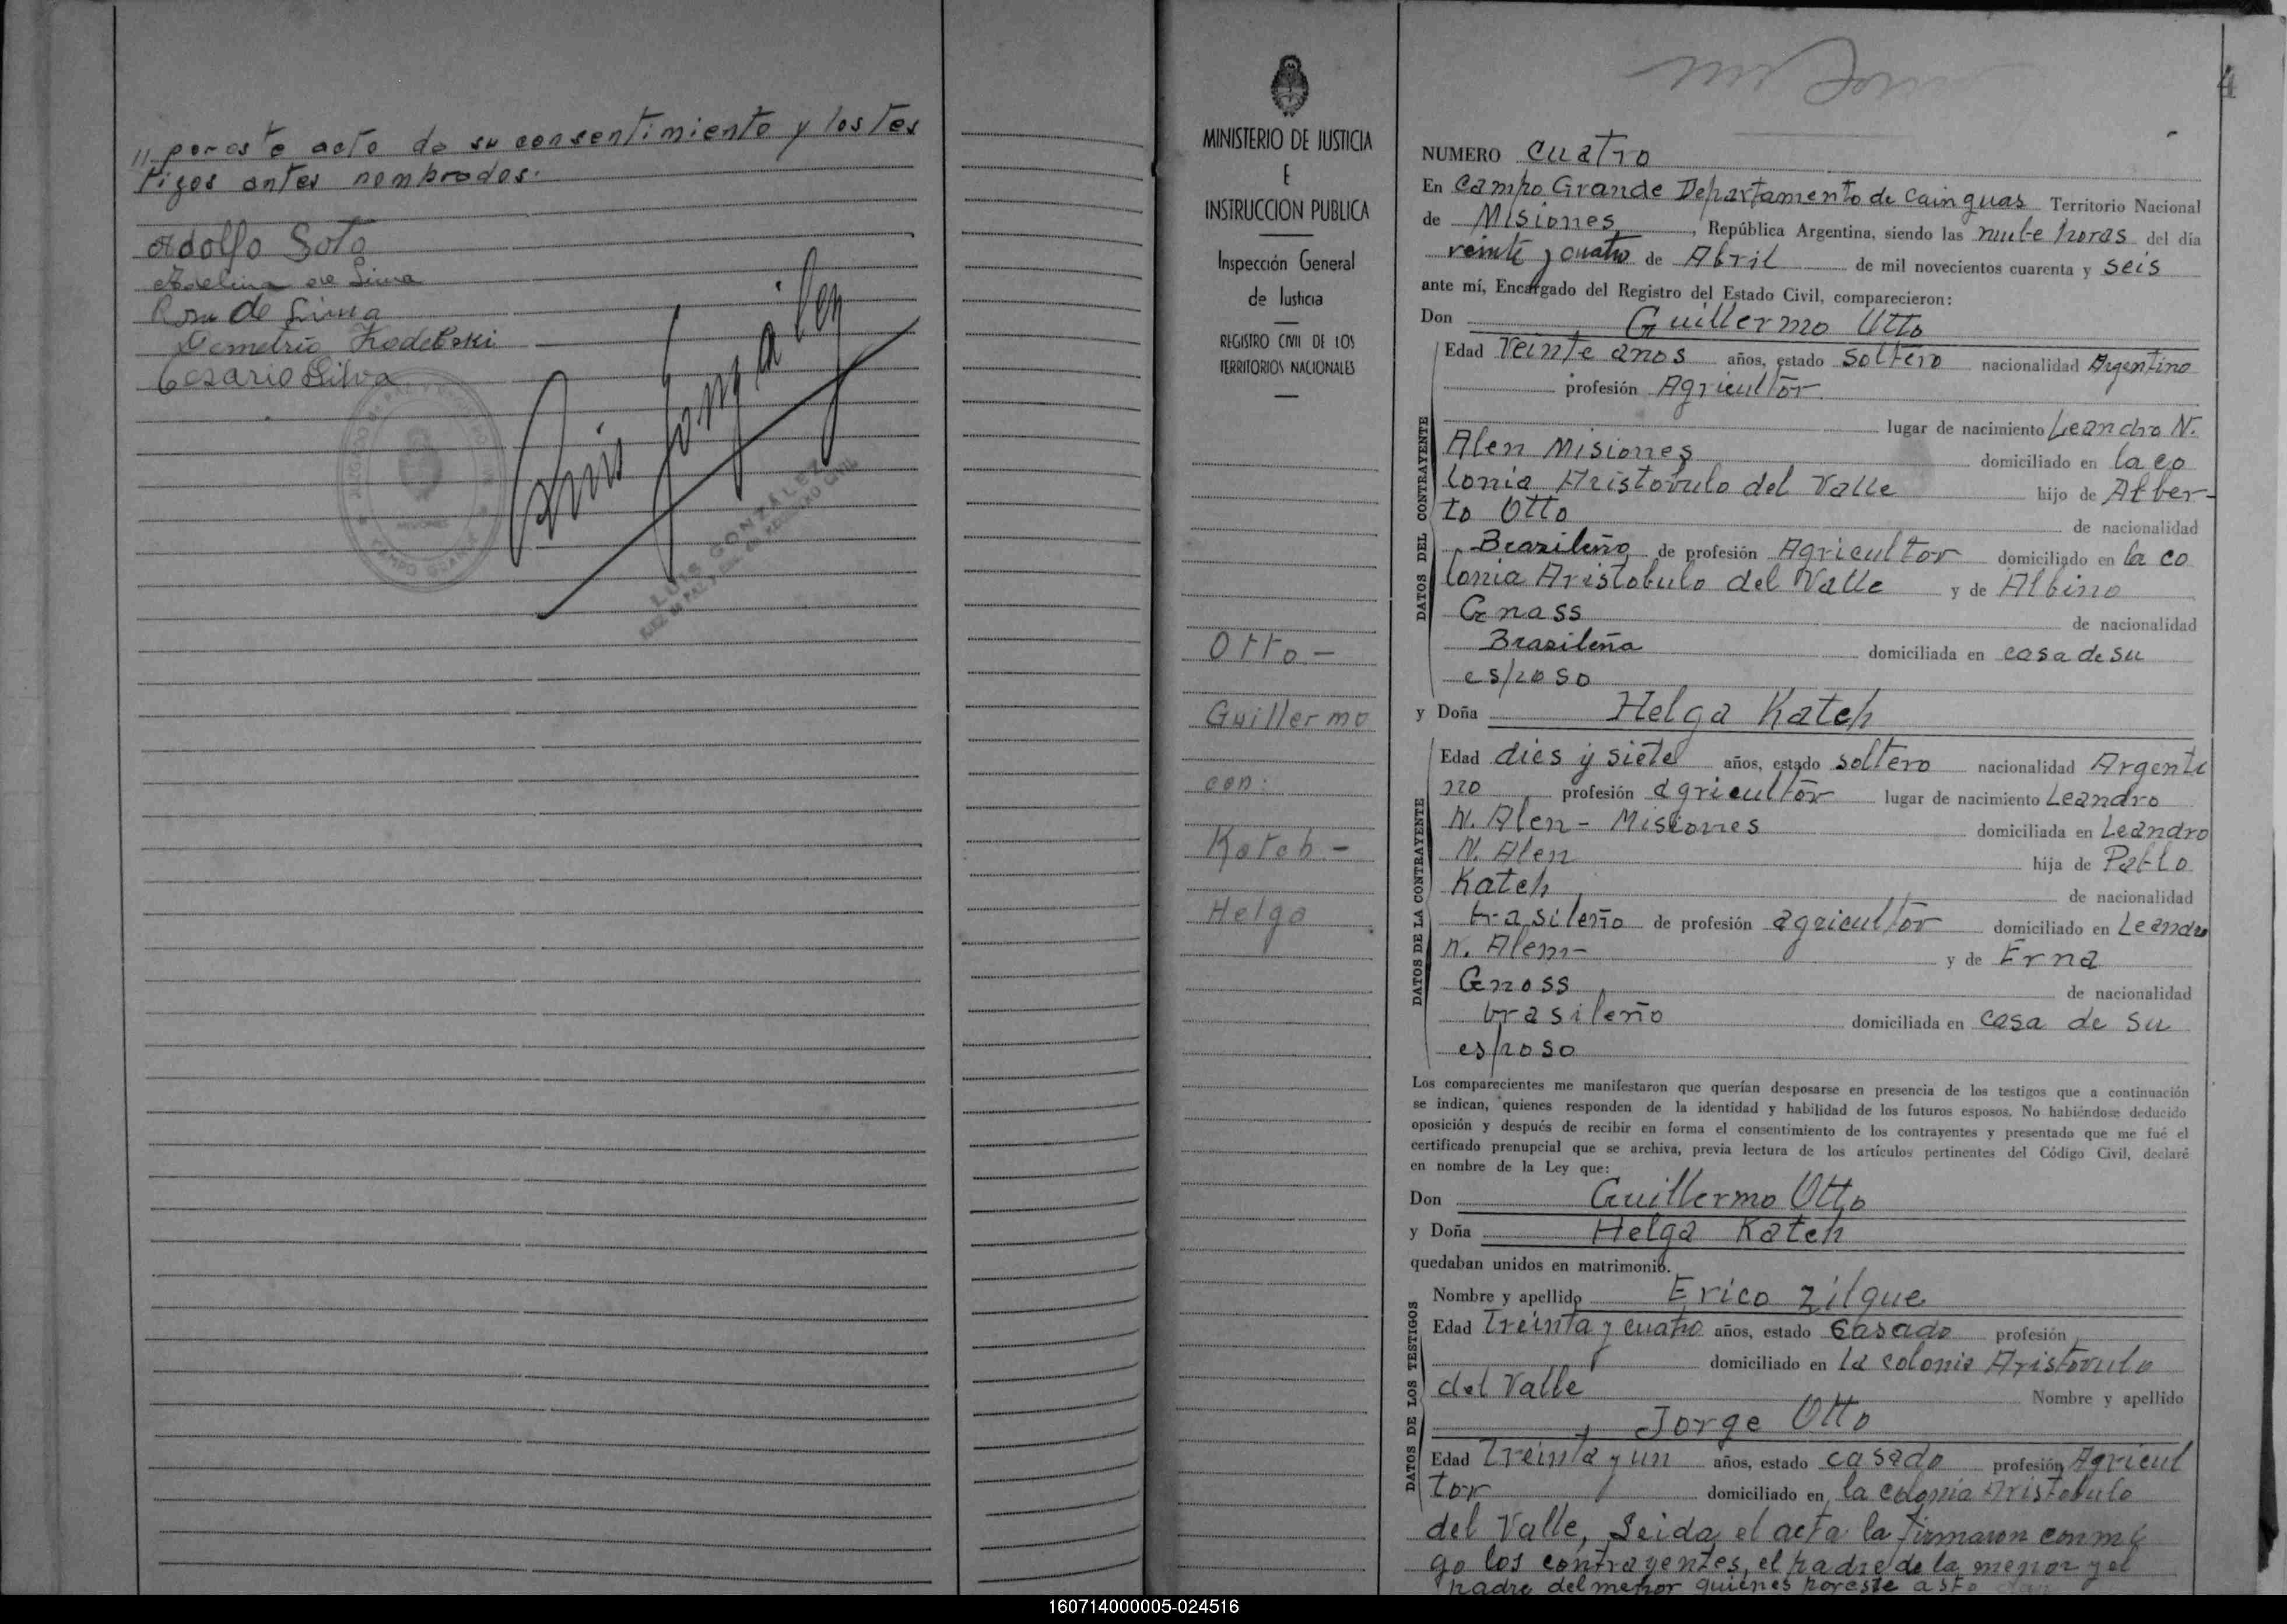 " por este acto de su consentimiento y los tes
tigos antes nombrados.
Adolfo Soto
Adelina de Lima
Rosa de Lima
Demetrio Kodebski
Cesario Silva
Luis Gonzalez
CAMPO GRANDE
MISIONES
LUIS GONZALEZ
JUEZ DE PAZ Y ENC. DE REGISTRO CIVIL
MINISTERIO DE JUSTICIA
E
INSTRUCCION PUBLICA
Inspección General
de Justicia
REGISTRO CIVIL DE LOS
TERRITORIOS NACIONALES
Otto -
Guillermo
con:
Katch -
Helga
4
NUMERO cuatro
En Campo Grande Departamento de Cainguas Territorio Nacional
de Misiones, República Argentina, siendo las nueve horas del día
veinte y cuatro de Abril de mil novecientos cuarenta y seis
ante mí, Encargado del Registro del Estado Civil, comparecieron:
Don Guillermo Otto
Edad veinte anos años, estado soltero nacionalidad Argentino
profesión Agricultor
lugar de nacimiento Leandro N.
Alen Misiones domiciliado en la co
lonia Aristovulo del Valle hijo de Alber-
to Otto de nacionalidad
Brazileño de profesión Agricultor domiciliado en la co
lonia Aristobulo del Valle y de Albino
Gnass de nacionalidad
Brazileña domiciliada en casa de su
esposo
y Doña Helga Katch
Edad dies y siete años, estado soltero nacionalidad Argenti
no profesión agricultor lugar de nacimiento Leandro
N. Alen - Misiones domiciliada en Leandro
N. Alen hija de Pablo
Katch de nacionalidad
brasileño de profesión agricultor domiciliado en Leandro
N. Alem- y de Erna
Gnoss de nacionalidad
brasileño domiciliada en casa de su
esposo
Los comparecientes me manifestaron que querían desposarse en presencia de los testigos que a continuación
se indican, quienes responden de la identidad y habilidad de los futuros esposos. No habiéndose deducido
oposición y después de recibir en forma el consentimiento de los contrayentes y presentado que me fué el
certificado prenupcial que se archiva, previa lectura de los artículos pertinentes del Código Civil, declaré
en nombre de la Ley que:
Don Guillermo Otto
y Doña Helga Katch
quedaban unidos en matrimonio.
Nombre y apellido Erico Zilque
Edad Treinta y cuatro años, estado Casado profesión
domiciliado en la colonia Aristovulo
del Valle Nombre y apellido
Jorge Otto
Edad Treinta y un años, estado casado profesión Agricul
tor domiciliado en la colonia Aristobulo
del Valle, Leida el acta la firmaron conmi
go los contrayentes, el padre de la menor y el
padre del menor quienes poreste asto dan
DATOS DEL CONTRAYENTE
DATOS DE LA CONTRAYENTE
DATOS DE LOS TESTIGOS
160714000005-024516